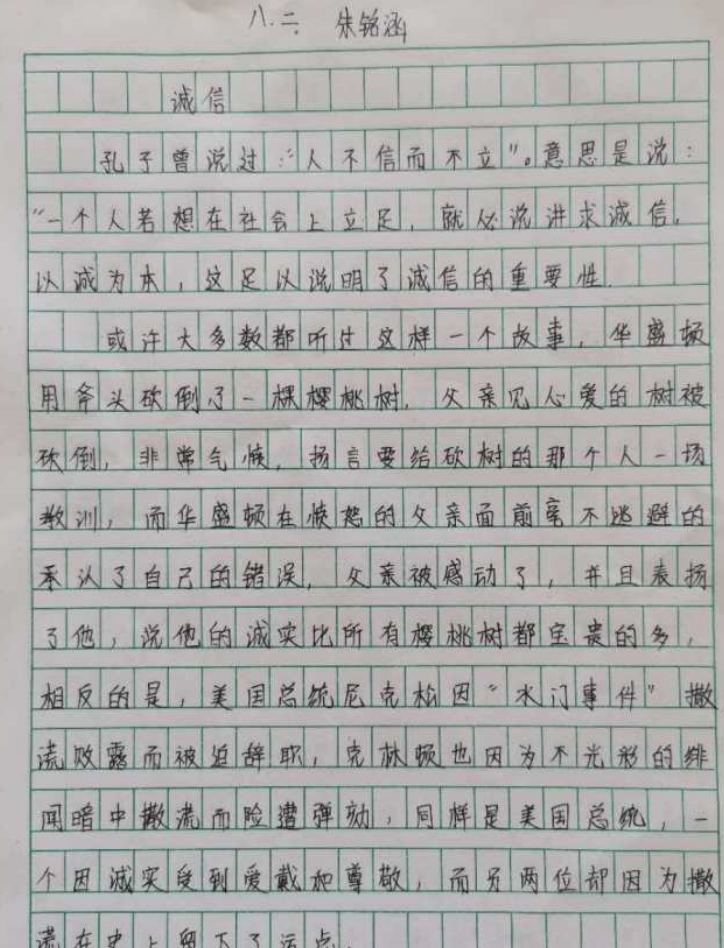 八.二 朱铭涵
诚信
孔子曾说过:“人不信而不立”。意思是说:
“一个人若想在社会上立足,就必说讲求诚信,
以诚为本,这足以说明了诚信的重要性.
或许大多数都听过这样一个故事,华盛顿
用斧头砍倒了一棵樱桃树,父亲见心爱的树被
砍倒,非常气愤,扬言要给砍树的那个人一场
教训,而华盛顿在愤怒的父亲面前毫不逃避的
承认了自己的错误,父亲被感动了,并且表扬
了他,说他的诚实比所有樱桃树都宝贵的多,
相反的是,美国总统尼克松因“水门事件”撒
谎败露而被迫辞职,克林顿也因为不光彩的绯
闻暗中撒谎而险遭弹劾,同样是美国总统,一
个因诚实受到爱戴和尊敬,而另两位却因为撒
谎在史上留下了污点.